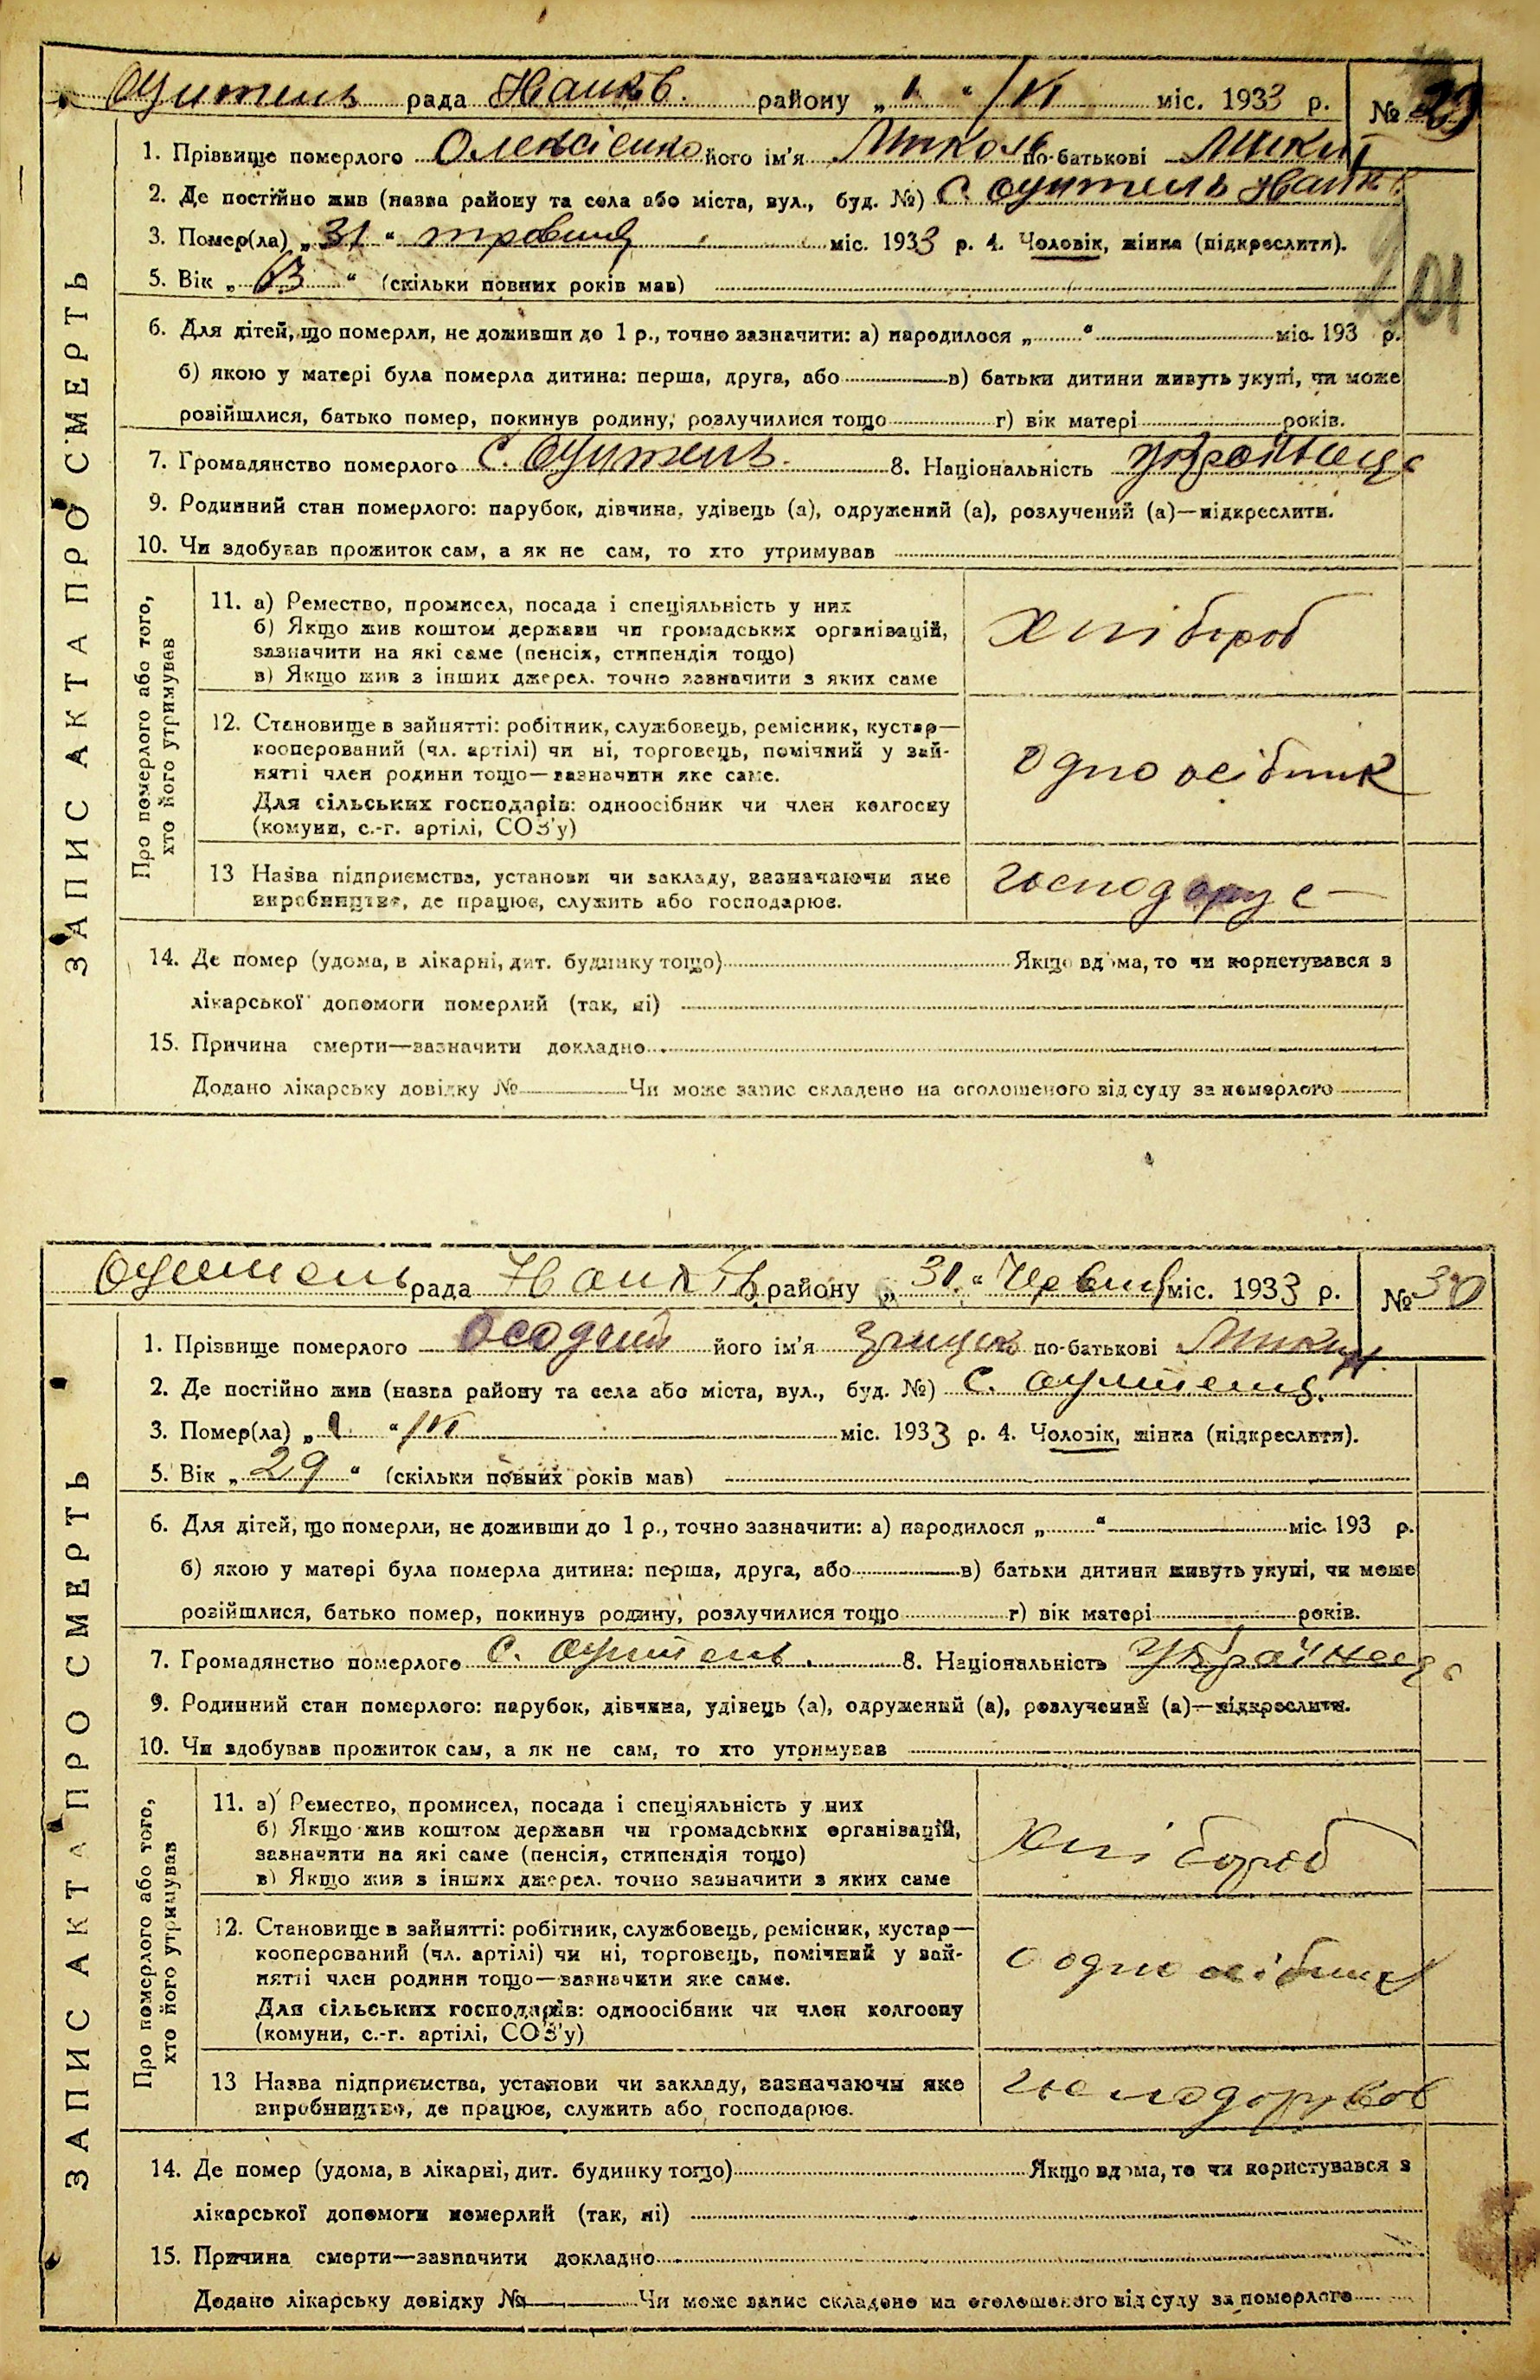 Оцитель рада Наикв. району „1“ /VI міс. 1933 р. № 29
1. Прізвище померлого Олексієнко його ім'я Микола по-батькові Микит
2. Де постійно жив (назва району та села або міста, вул., буд. №) с. Оцитель
3. Помер(ла) „31“ травня міс. 1933 р. 4. Чоловік, жінка (підкреслити).
5. Вік „63“ (скільки повних років мав)
201
6. Для дітей, що померли, не доживши до 1 р., точно зазначити: а) народилося „ “ міс. 193 р.
б) якою у матері була померла дитина: перша, друга, або в) батьки дитини живуть укупі, чи може
розійшлися, батько помер, покинув родину, розлучилися тощо г) вік матері років.
7. Громадянство померлого с. Оцитель. 8. Національність українець
9. Родинний стан померлого: парубок, дівчина, удівець (а), одружений (а), розлучений (а)—підкреслити.
10. Чи здобував прожиток сам, а як не сам, то хто утримував
ЗАПИС АКТА ПРО СМЕРТЬ
Про померлого або того,
хто його утримував
11. а) Ремество, промисел, посада і спеціяльність у них
б) Якщо жив коштом держави чи громадських організацій,
зазначити на які саме (пенсія, стипендія тощо)
в) Якщо жив з інших джерел. точно зазначити з яких саме
хлібороб
12. Становище в зайнятті: робітник, службовець, ремісник, кустар—
кооперований (чл. артілі) чи ні, торговець, помічний у зай-
нятті член родини тощо—зазначити яке саме.
Для сільських господарів: одноосібник чи член колгоспу
(комуни, с.-г. артілі, СОЗ'у)
одноосібник
13 Назва підприємства, установи чи закладу, зазначаючи яке
виробництво, де працює, служить або господарює.
господарує
14. Де помер (удома, в лікарні, дит. будинку тощо) Якщо вдома, то чи користувався з
лікарської допомоги померлий (так, ні)
15. Причина смерти—зазначити докладно
Додано лікарську довідку № Чи може запис складено на оголошеного від суду за померлого
Оцитель рада району „31“ Червня міс. 1933 р. № 30
1. Прізвище померлого Осадчий його ім'я Грицько по-батькові Микит
2. Де постійно жив (назва району та села або міста, вул., буд. №) с. Оцитель.
3. Помер(ла) „1“ /VI міс. 1933 р. 4. Чоловік, жінка (підкреслити).
5. Вік „29“ (скільки повних років мав)
6. Для дітей, що померли, не доживши до 1 р., точно зазначити: а) народилося „ “ міс. 193 р.
б) якою у матері була померла дитина: перша, друга, або в) батьки дитини живуть укупі, чи може
розійшлися, батько помер, покинув родину, розлучилися тощо г) вік матері років.
7. Громадянство померлого с. Оцитель. 8. Національність українець
9. Родинний стан померлого: парубок, дівчина, удівець (а), одружений (а), розлучений (а)—підкреслити.
10. Чи здобував прожиток сам, а як не сам, то хто утримував
ЗАПИС АКТА ПРО СМЕРТЬ
Про померлого або того,
хто його утримував
11. а) Ремество, промисел, посада і спеціяльність у них
б) Якщо жив коштом держави чи громадських організацій,
зазначити на які саме (пенсія, стипендія тощо)
в) Якщо жив з інших джерел. точно зазначити з яких саме
хлібороб
12. Становище в зайнятті: робітник, службовець, ремісник, кустар—
кооперований (чл. артілі) чи ні, торговець, помічний у зай-
нятті член родини тощо—зазначити яке саме.
Для сільських господарів: одноосібник чи член колгоспу
(комуни, с.-г. артілі, СОЗ'у)
одноосібник
13 Назва підприємства, установи чи закладу, зазначаючи яке
виробництво, де працює, служить або господарює.
господорював
14. Де помер (удома, в лікарні, дит. будинку тощо) Якщо вдома, то чи користувався з
лікарської допомоги померлий (так, ні)
15. Причина смерти—зазначити докладно
Додано лікарську довідку № Чи може запис складено на оголошеного від суду за померлого